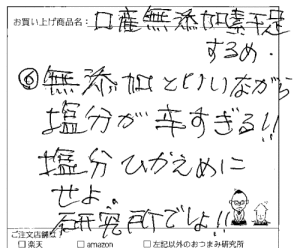 お買い上げ商品名: 口産無添加素干足
するめ.
⑥無添加とりいながら
塩分が辛すぎる!!
塩分ひかえめに
せよ.
研究所でしょ!!
ご注文店舗は?
□楽天 □amazon □左記以外のおつまみ研究所